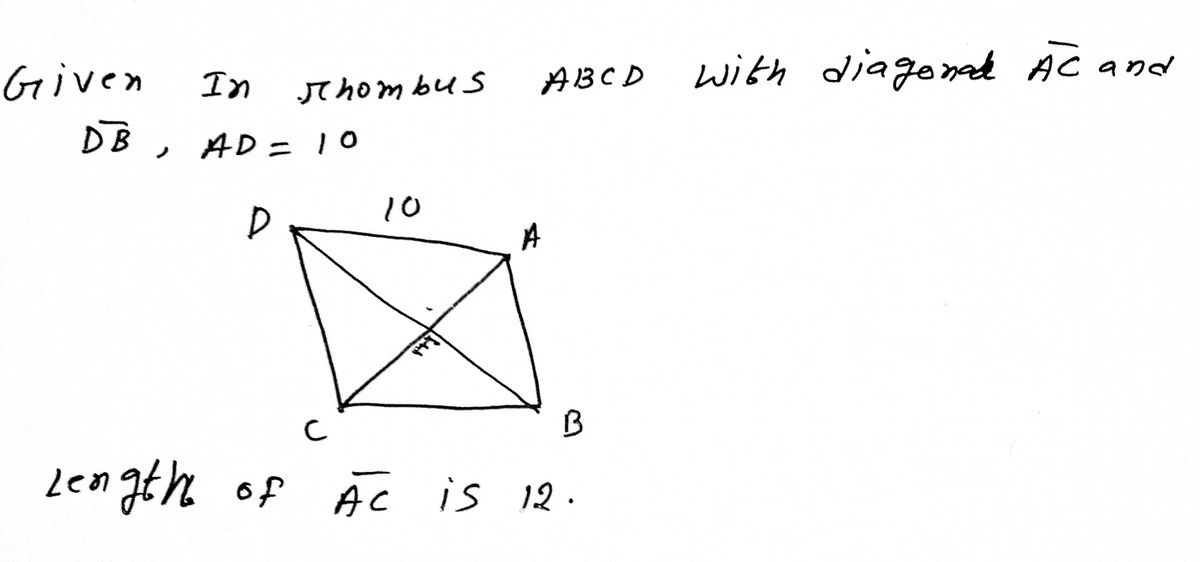 Given In rhombus ABCD with diagonal A̅C̅ and
D̅B̅ , AD = 10
10
D
A
C
B
Length of A̅C̅ is 12.